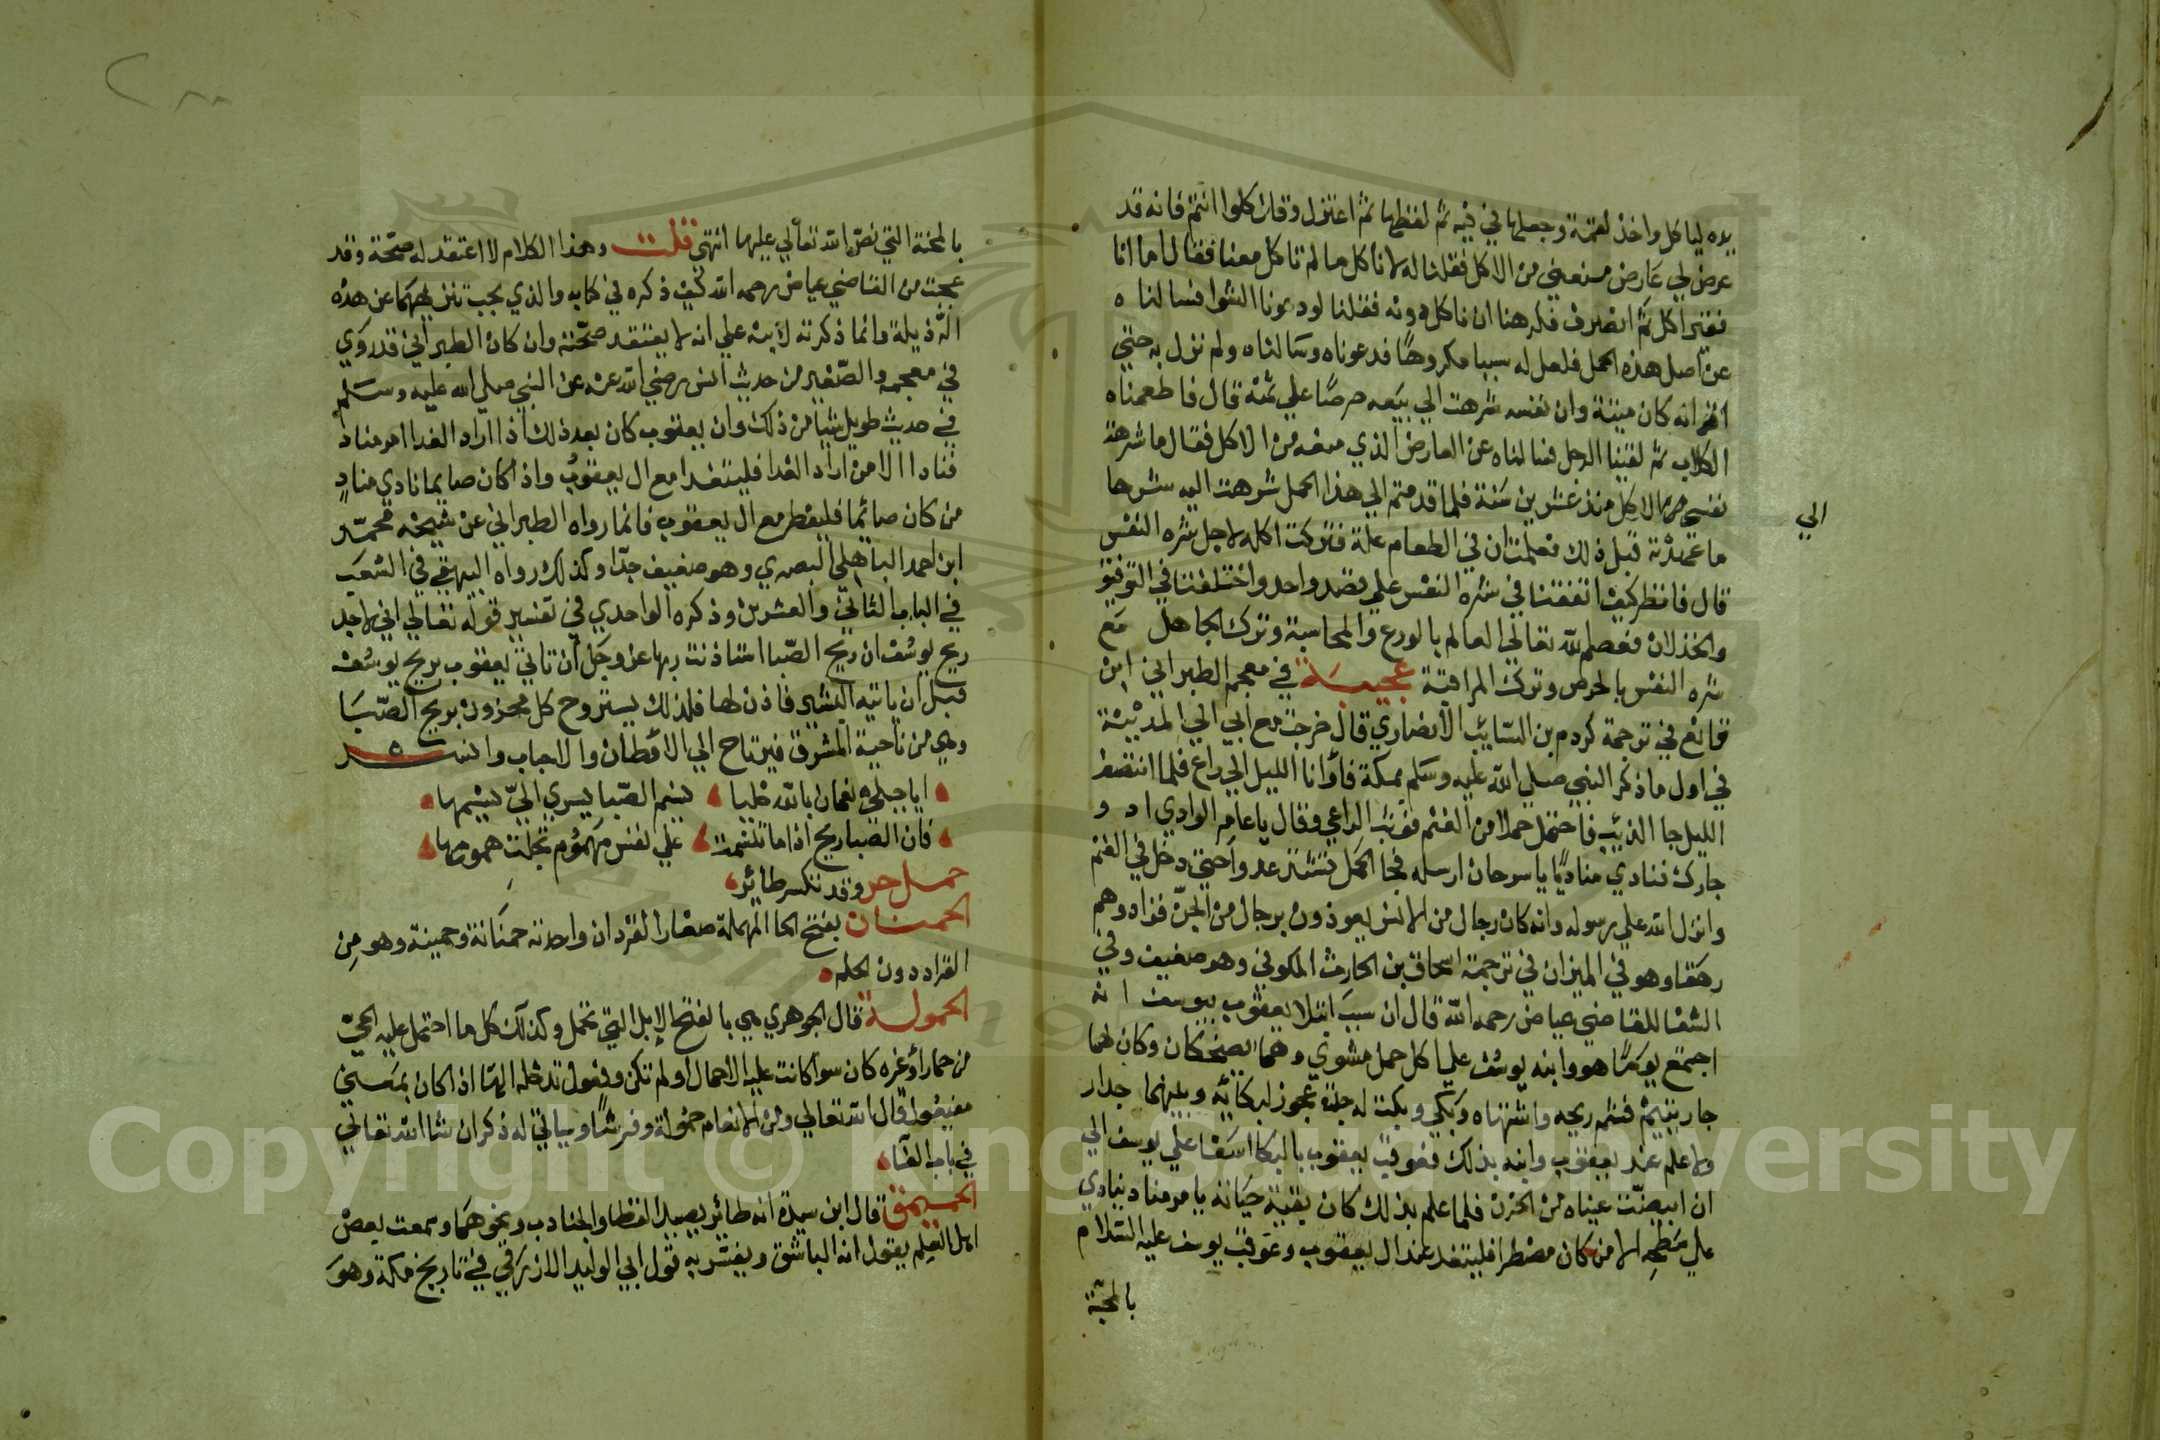 يده لياكل واخذ لقمة وجعلها في فيه ثم لفظها ثم اعتزل وقال كلوا انتم فانه قد
عرض لي عارض منعني من الاكل فقلنا له لا ناكل ما لم تاكل معنا فقال اما انا
فغير اكل ثم انصرف فكرهنا ان ناكل دونه فقلنا لو دعونا الشوا فسالناه
عن اصل هذه الحمل فلعل له سببا مكروها فدعوناه وسالناه ولم نزل به حتي
اقر انه كان ميتة وان نفسه شرهت الي بيعه حرصا علي ثمنه قال فاطعمناه
الكلاب ثم لقينا الرجل فسالناه عن العارض الذي منعه من الاكل فقال ما شرهت
نفسي الاكل منذ عشرين سنة فلما قدمتم الي هذا الحمل شرهت اليه شرها
الي
ما عهدته قبل ذلك فعلمت ان في الطعام علة فتركت اكله لاجل شره النفس
قال فانظر كيف اتفقنا في شره النفس علي قصد واحد واختلفنا في التوفيق
والخذلان فعصم الله تعالي العالم بالورع والمحاسبة وترك الجاهل مع
شره النفس بالحرص وترك المراقبة عجيبة في معجم الطبراني ابن
قانع في ترجمة كردم بن السايب الانصاري قال خرجت مع ابي الي المدينة
في اول ما ذكر النبي صلي الله عليه وسلم بمكة فاوانا الليل الي راع فلما انتصف
الليل جا الذئب فاحتمل حملا من الغنم فوثب الراعي وقال يا عامر الوادي اد و
جارك فنادي مناديا يا سرحان ارسله فجا الحمل تشتد عدوا حتي دخل في الغنم
وانزل الله علي رسوله وانه كان رجال من الانس يعوذون برجال من الجن فزادوهم
رهقا وهو في الميزان في ترجمة اسحاق بن الحارث الكوفي وهو ضعيف وفي
الشفا للقاضي عياض رحمه الله قال ان سبب ابتلا يعقوب بيوسف انه
اجتمع يوما هو وابنه يوسف علي اكل حمل مشوي وهما يضحكان وكان لهما
جار يتيم فشم ريحه واشتهاه وبكي وبكت له جدة عجوز لبكائه وبينهما جدار
ولا علم عند يعقوب وابنه بذلك فعوقب يعقوب بالبكا اسفا علي يوسف الي
ان ابيضت عيناه من الحزن فلما علم بذلك كان بقية حياته يامر مناديا ينادي
علي سطحه الا من كان مفطرا فليتغد عند ال يعقوب وعوقب يوسف عليه السلام
بالمحنة
بالمحنة التي نص الله تعالي عليها انتهي قلت وهذا الكلام لا اعتقد له صحة وقد
عجبت من القاضي عياض رحمه الله كيف ذكره في كتابه والذي يجب تنزيههما عن هذه
الرذيلة وانما ذكرته لانبه علي انه لا يعتقد صحته وان كان الطبراني قد روي
في معجمه والصغير من حديث انس رضي الله عنه عن النبي صلي الله عليه وسلم
في حديث طويل شيا من ذلك وان يعقوب كان بعد ذلك اذا اراد الغدا امر مناد
فنادا الا من اراد الغدا فليتغدا مع ال يعقوب واذا كان صايما نادي مناد
من كان صائما فليفطر مع ال يعقوب فانما رواه الطبراني عن شيخه محمد
ابن احمد الباهلي البصري وهو ضعيف جدا وكذلك رواه البيهقي في الشعب
في الباب الثاني والعشرين وذكره الواحدي في تفسير قوله تعالي اني لاجد
ريح يوسف ان ريح الصبا استاذنت ربها عز وجل ان تاتي يعقوب بريح يوسف
قبل ان ياتيه البشير فاذن لها فلذلك يستروح كل محزون بريح الصبا
وهي من ناحية المشرق فيرتاح الي الاوطان والاحباب وانشد
ايا جبلي نعمان بالله خليا نسيم الصبا يسري الي نسيمها
فان الصبا ريح اذا ما تنسمت علي نفس مهموم تجلت همومها
حمل حر وقد تكسر طائر
الحمنان بفتح الحا المهملة صغار القردان واحدته حمنانة وحمينة وهو من
القراد دون الحلم
الحمولة قال الجوهري هي بالفتح الابل التي تحمل وكذلك كل ما احتمل عليه الحي
من حمار او غيره كان سوا كانت عليه الاحمال ولم تكن وفعول تدخله الها اذا كان بمعني
مفعول قال الله تعالي ومن الانعام حمولة وفرشا وسياتي له ذكر ان شا الله تعالي
في باب الفا
الحميمق قال ابن سيدة انه طائر يصيد القطا والجنادب ونحوهما وسمعت بعض
اهل العلم يقول انه الباشق ويفسر به قول ابي الوليد الازرقي في تاريخ مكة وهو
Copyright © King Saud University